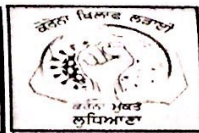 ਕੋਰੋਨਾ ਖਿਲਾਫ ਲੜਾਈ
ਕਰੋਨਾ ਮੁਕਤ
ਲੁਧਿਆਣਾ